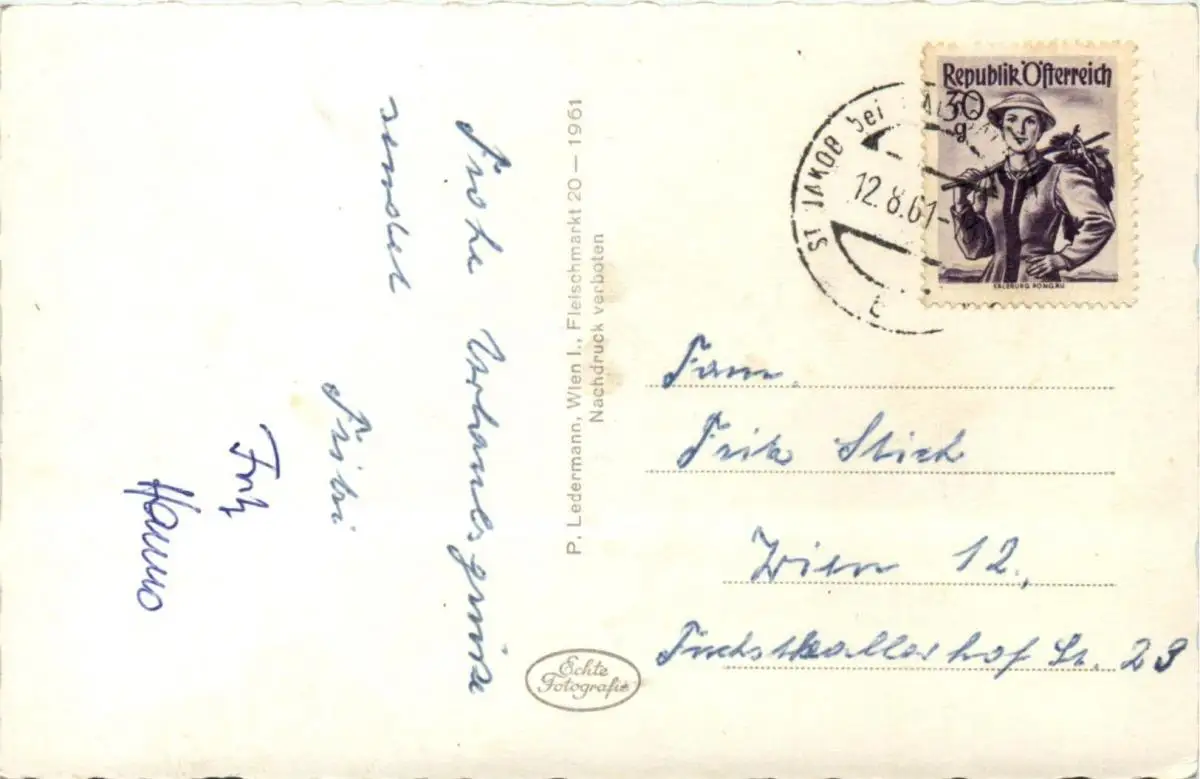 Frohe Urlaubsgrüsse
sendet
Fritzi
Fritz
Hanno
P. Ledermann, Wien I., Fleischmarkt 20 — 1961
Nachdruck verboten
Echte
Fotografie
Republik Österreich
30
g
SALZBURG PONGAU
ST JAKOB bei
12.8.61
Fam.
Fritz
Wien 12.,
hof St. 23